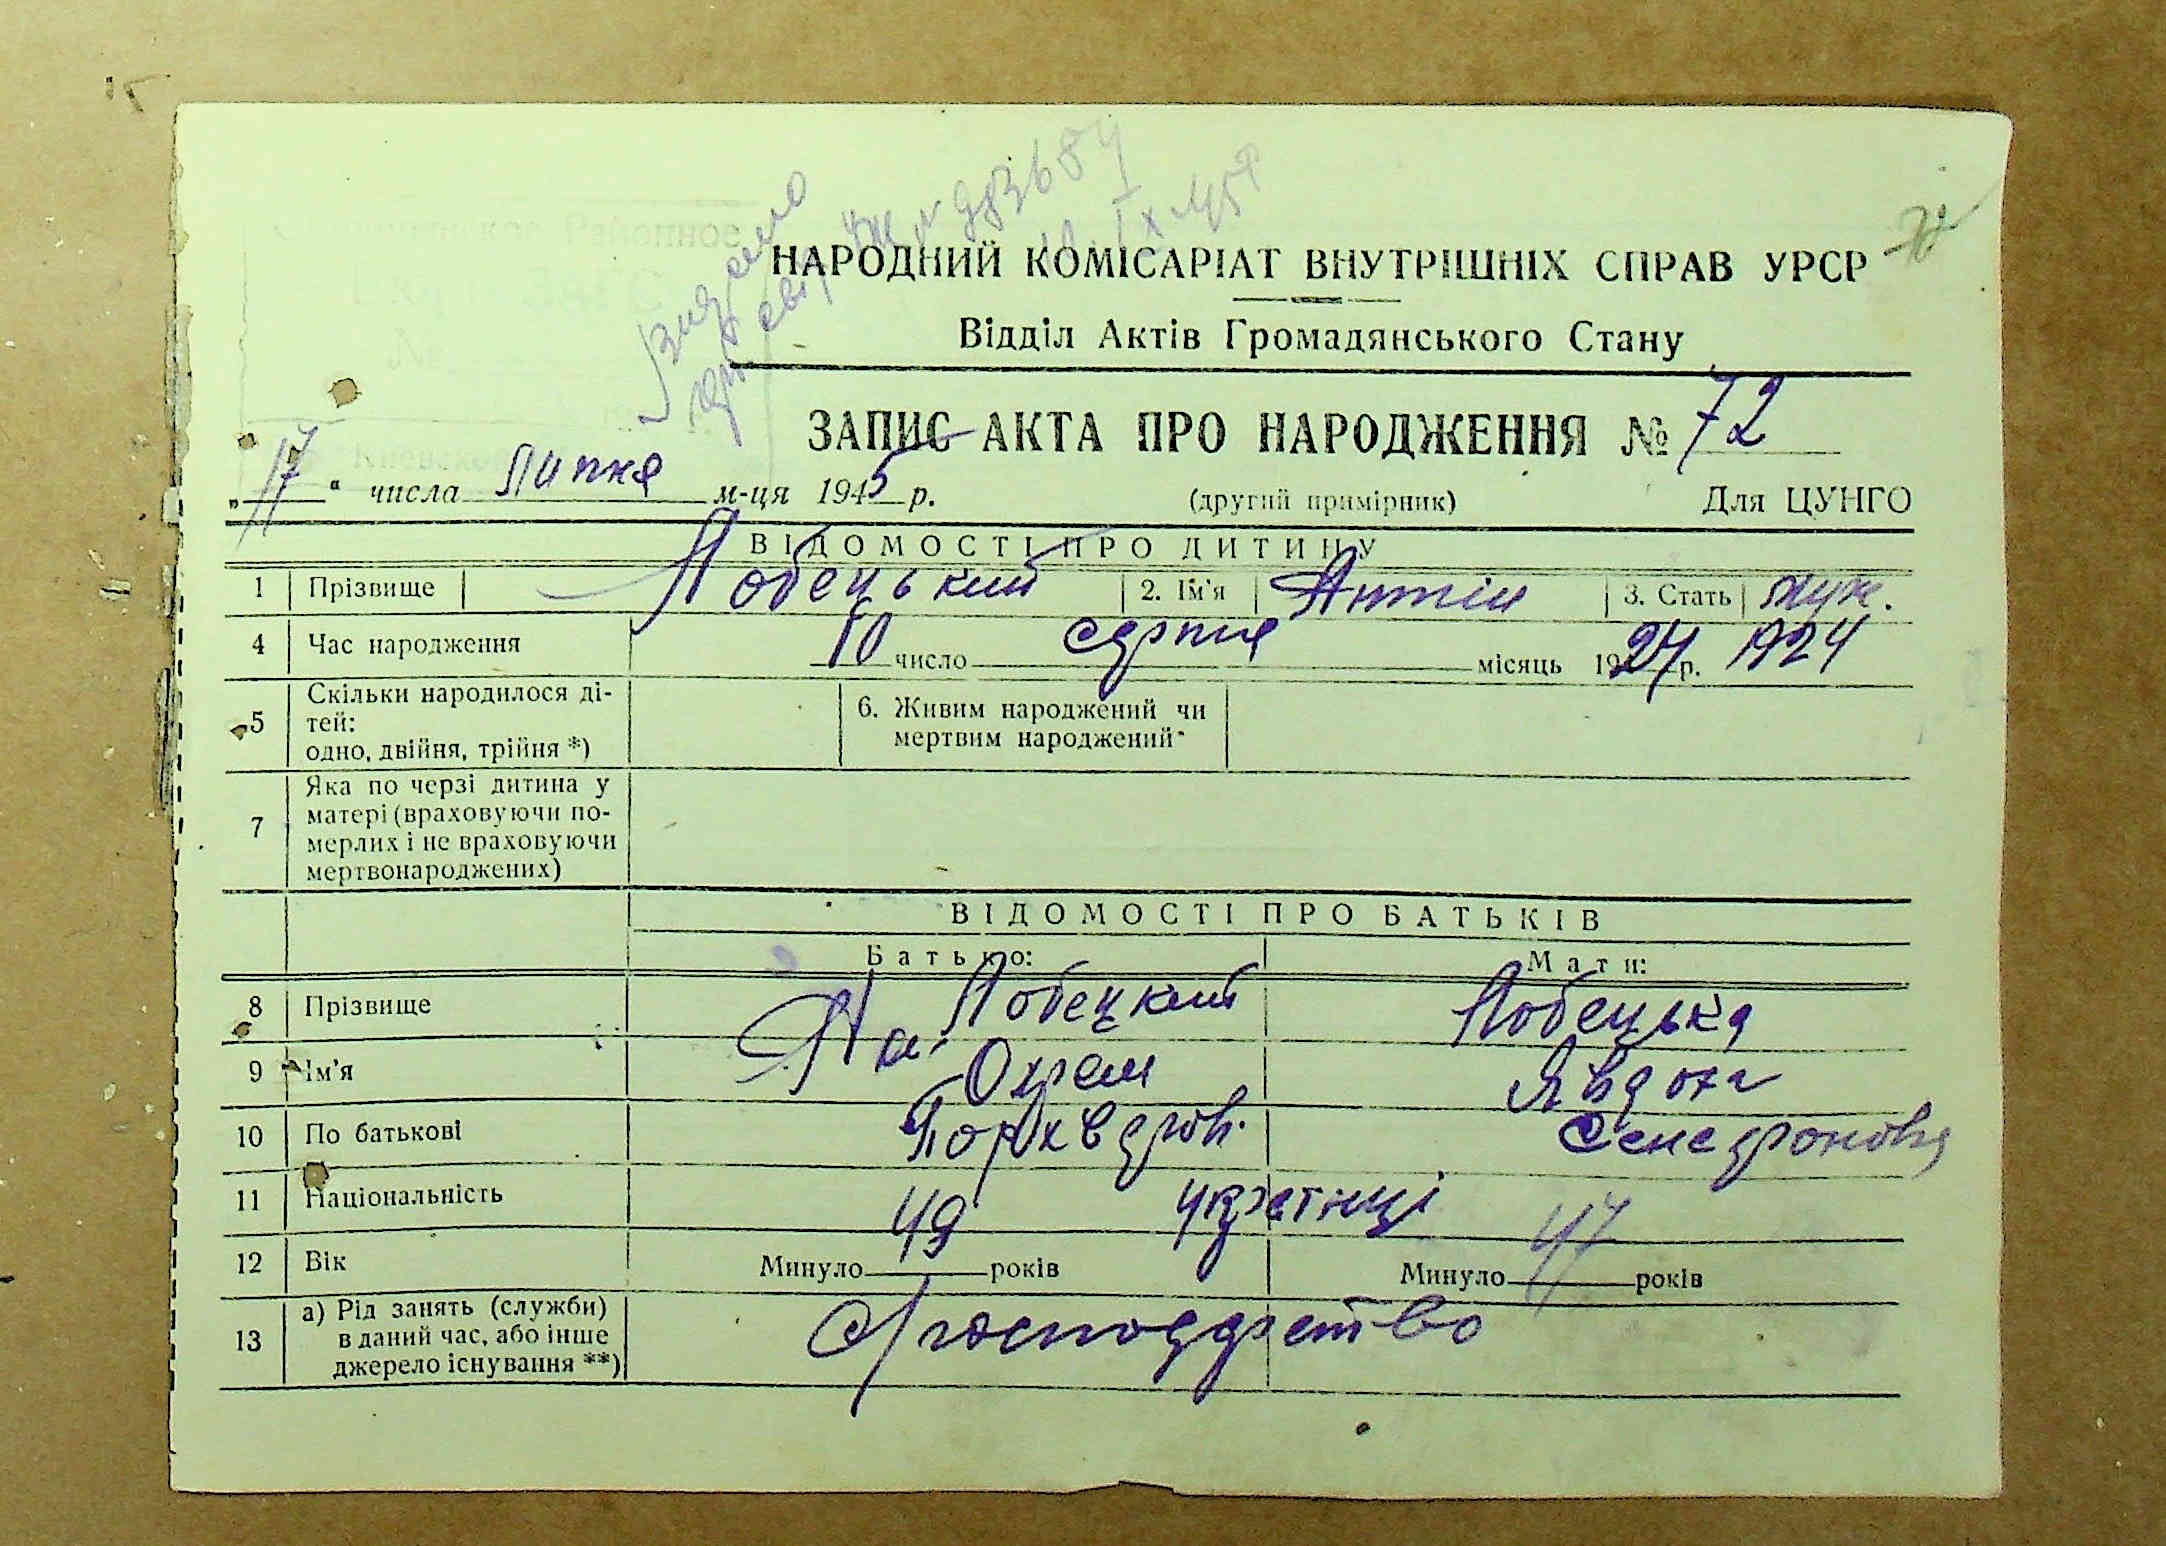 Видано
НАРОДНИЙ КОМІСАРІАТ ВНУТРІШНІХ СПРАВ УРСР
Відділ Актів Громадянського Стану
ЗАПИС АКТА ПРО НАРОДЖЕННЯ № 72
„17“ числа Липня м-ця 1945 р. (другий примірник) Для ЦУНГО
ВІДОМОСТІ ПРО ДИТИНУ
1 Прізвище Лобецький 2. Ім'я Антін 3. Стать муж.
4 Час народження 10 число серпня місяць 1924 р. 1924
5 Скільки народилося ді-
тей:
одно, двійня, трійня *)
6. Живим народжений чи
мертвим народжений*
7 Яка по черзі дитина у
матері (враховуючи по-
мерлих і не враховуючи
мертвонароджених)
ВІДОМОСТІ ПРО БАТЬКІВ
Батько: Мати:
8 Прізвище Лобецкий Лобецька
9 Ім'я Охрем Явдоха
10 По батькові
11 Національність українці
12 Вік Минуло 49 років Минуло 47 років
13 а) Рід занять (служби)
в даний час, або інше
джерело існування **)